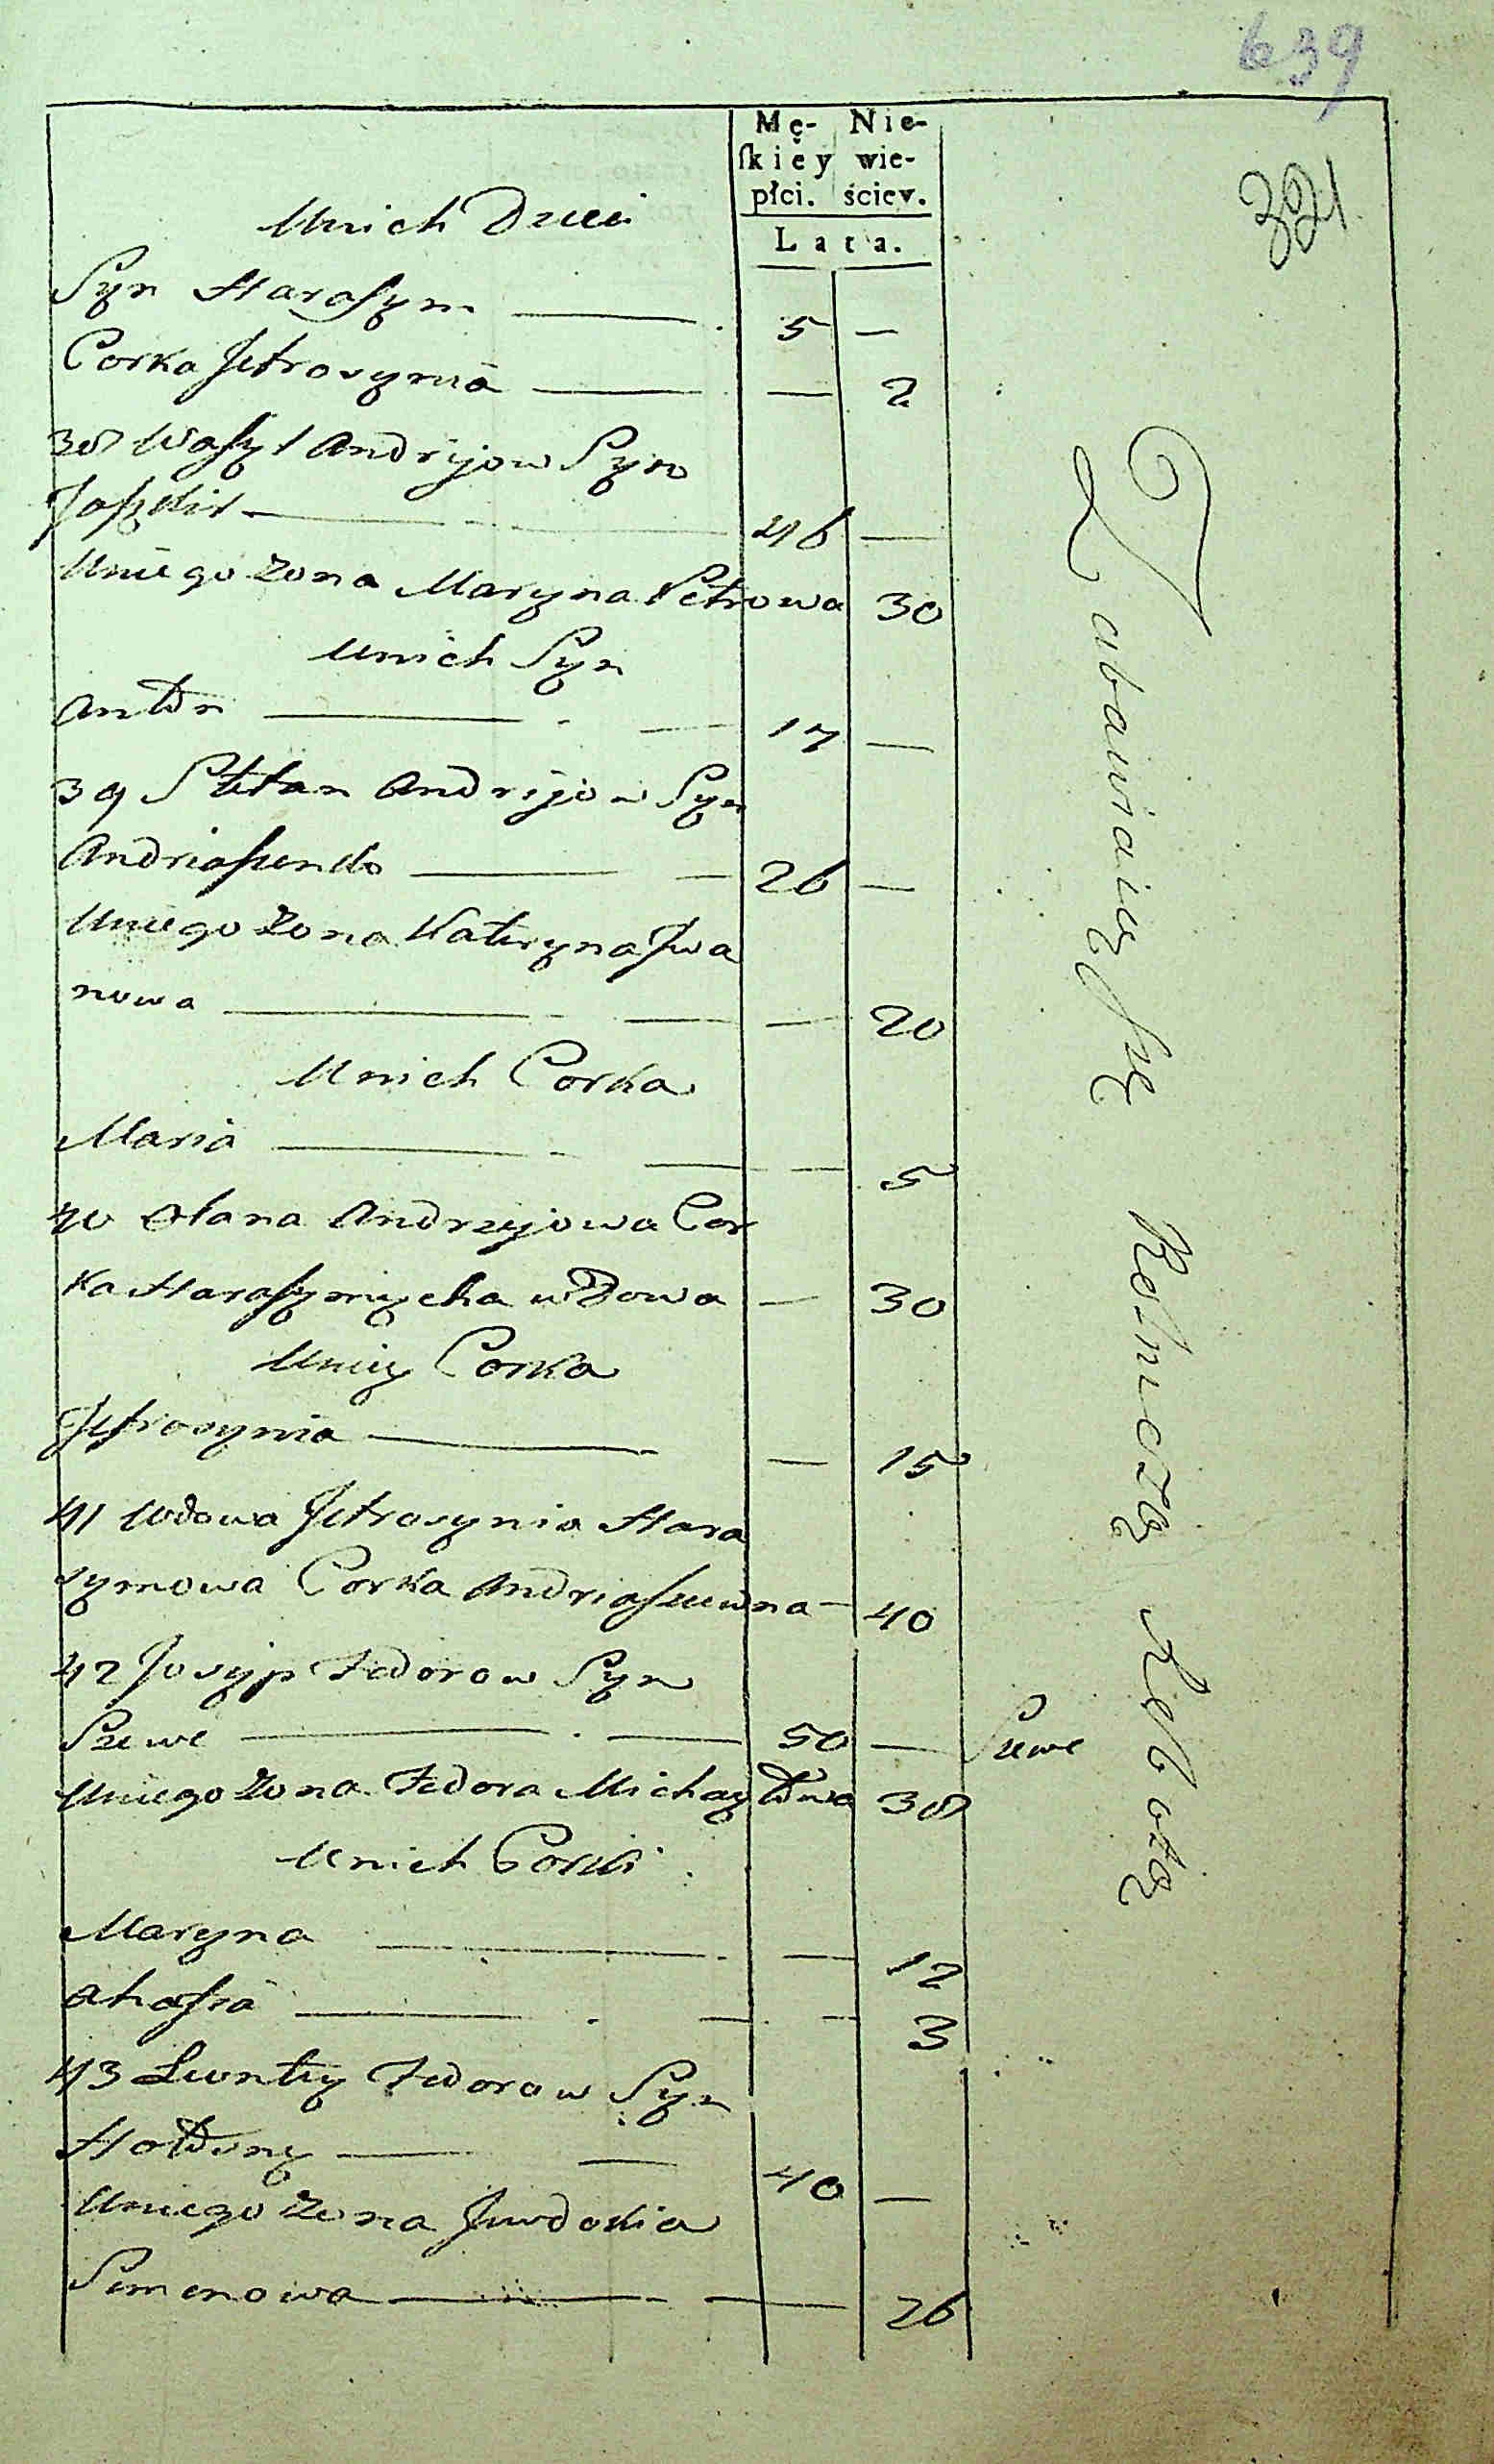 639
321
Mę- Nie-
ſkiey wie-
płci. ściey.
Lata.
Unich Dzieci
Syn Haraſym — 5 —
Corka Jefrosynia — — 2
38 Waſyl Andrijow Syn
46 —
Uniego Zona Maryna Petrowa 30
Unich Syn
Anton — 17 —
39 Stefan Andrijow Syn
Andriaſzenko — 26 —
Uniego Zona Kateryna Jwa
nowa — — 20
Unich Corka
Maria — — 5
40 Olana Andrzyjowa Cor
ka Haraſymycha wdowa — 30
Uniey Corka
Jefrosynia — — 15
41 Wdowa Jefrosynia Hara
symowa Corka Andriaſzewna — 40
42 Josyp Fedorow Syn
Szewc — 50 — Szewc
Uniego Zona Fedora Michayłowa 38
Unich Corki
Maryna — — 12
Ahafia — — 3
43 Lewntey Fedorow Syn
Hołowny — 40 —
Uniego Zona Jewdokia
Semenowa — — 26
Zabawiaią ſię Rolniczą Robotą